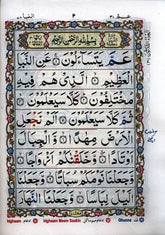 بِسْمِ اللّٰهِ الرَّحْمٰنِ الرَّحِيْمِ
عَمَّ يَتَسَآءَلُوْنَ ۝ عَنِ النَّبَاِ
الْعَظِيْمِ ۝ الَّذِيْ هُمْ فِيْهِ
مُخْتَلِفُوْنَ ۝ كَلَّا سَيَعْلَمُوْنَ ۝
ثُمَّ كَلَّا سَيَعْلَمُوْنَ ۝ اَلَمْ نَجْعَلِ
الْاَرْضَ مِهٰدًا ۝ وَّالْجِبَالَ
اَوْتَادًا ۝ وَّخَلَقْنٰكُمْ اَزْوَاجًا ۝
وَّجَعَلْنَا نَوْمَكُمْ سُبَاتًا ۝ وَّجَعَلْنَا
الَّيْلَ لِبَاسًا ۝ وَّجَعَلْنَا النَّهَارَ